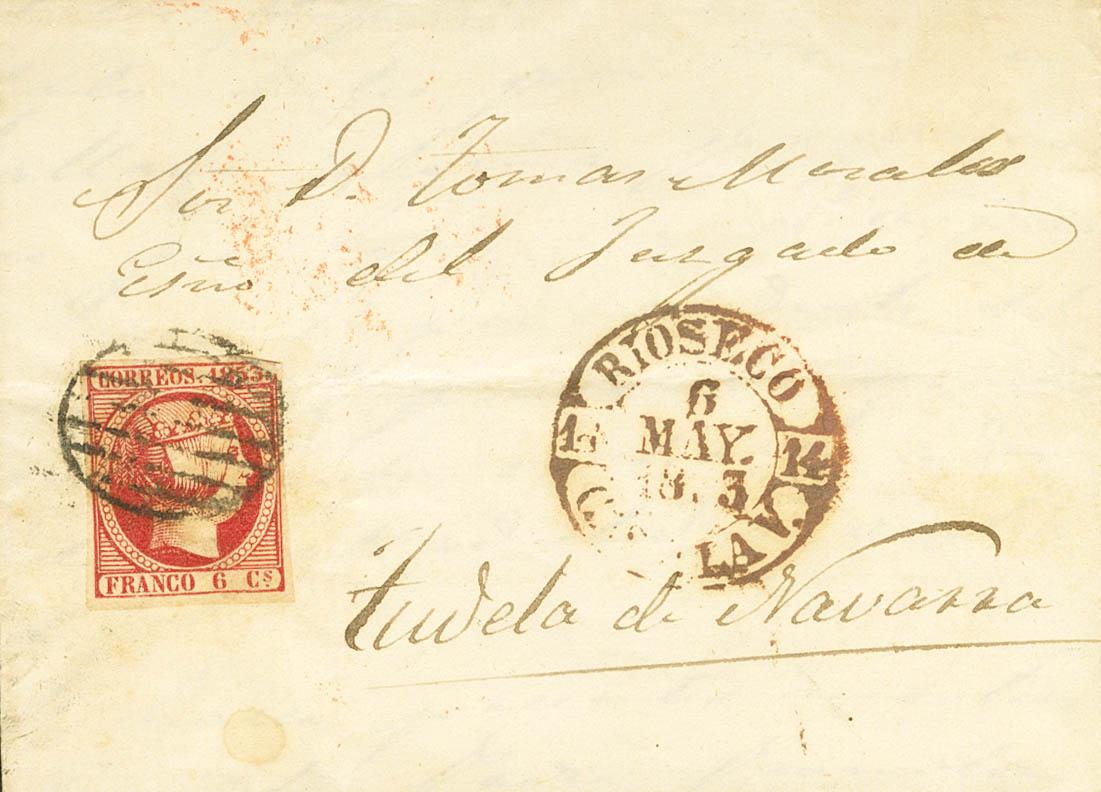 Sor D. Tomas Morales
Esño del Juzgado de
CORREOS. 1853
FRANCO 6 Cs
RIOSECO
6
MAY.
14
Tudela de Navarra